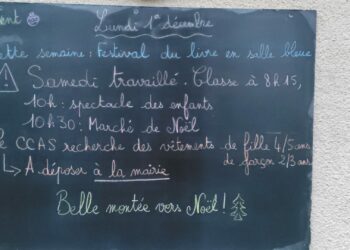 ent
Lundi 1er décembre
ette semaine : Festival du livre en salle bleue
! Samedi travaillé. Classe à 8h15,
10h : spectacle des enfants
10h30 : Marché de Noël
e CCAS recherche des vêtements de fille 4/5 ans
de garçon 2/3 ans
↳ A déposer à la mairie
Belle montée vers Noël !